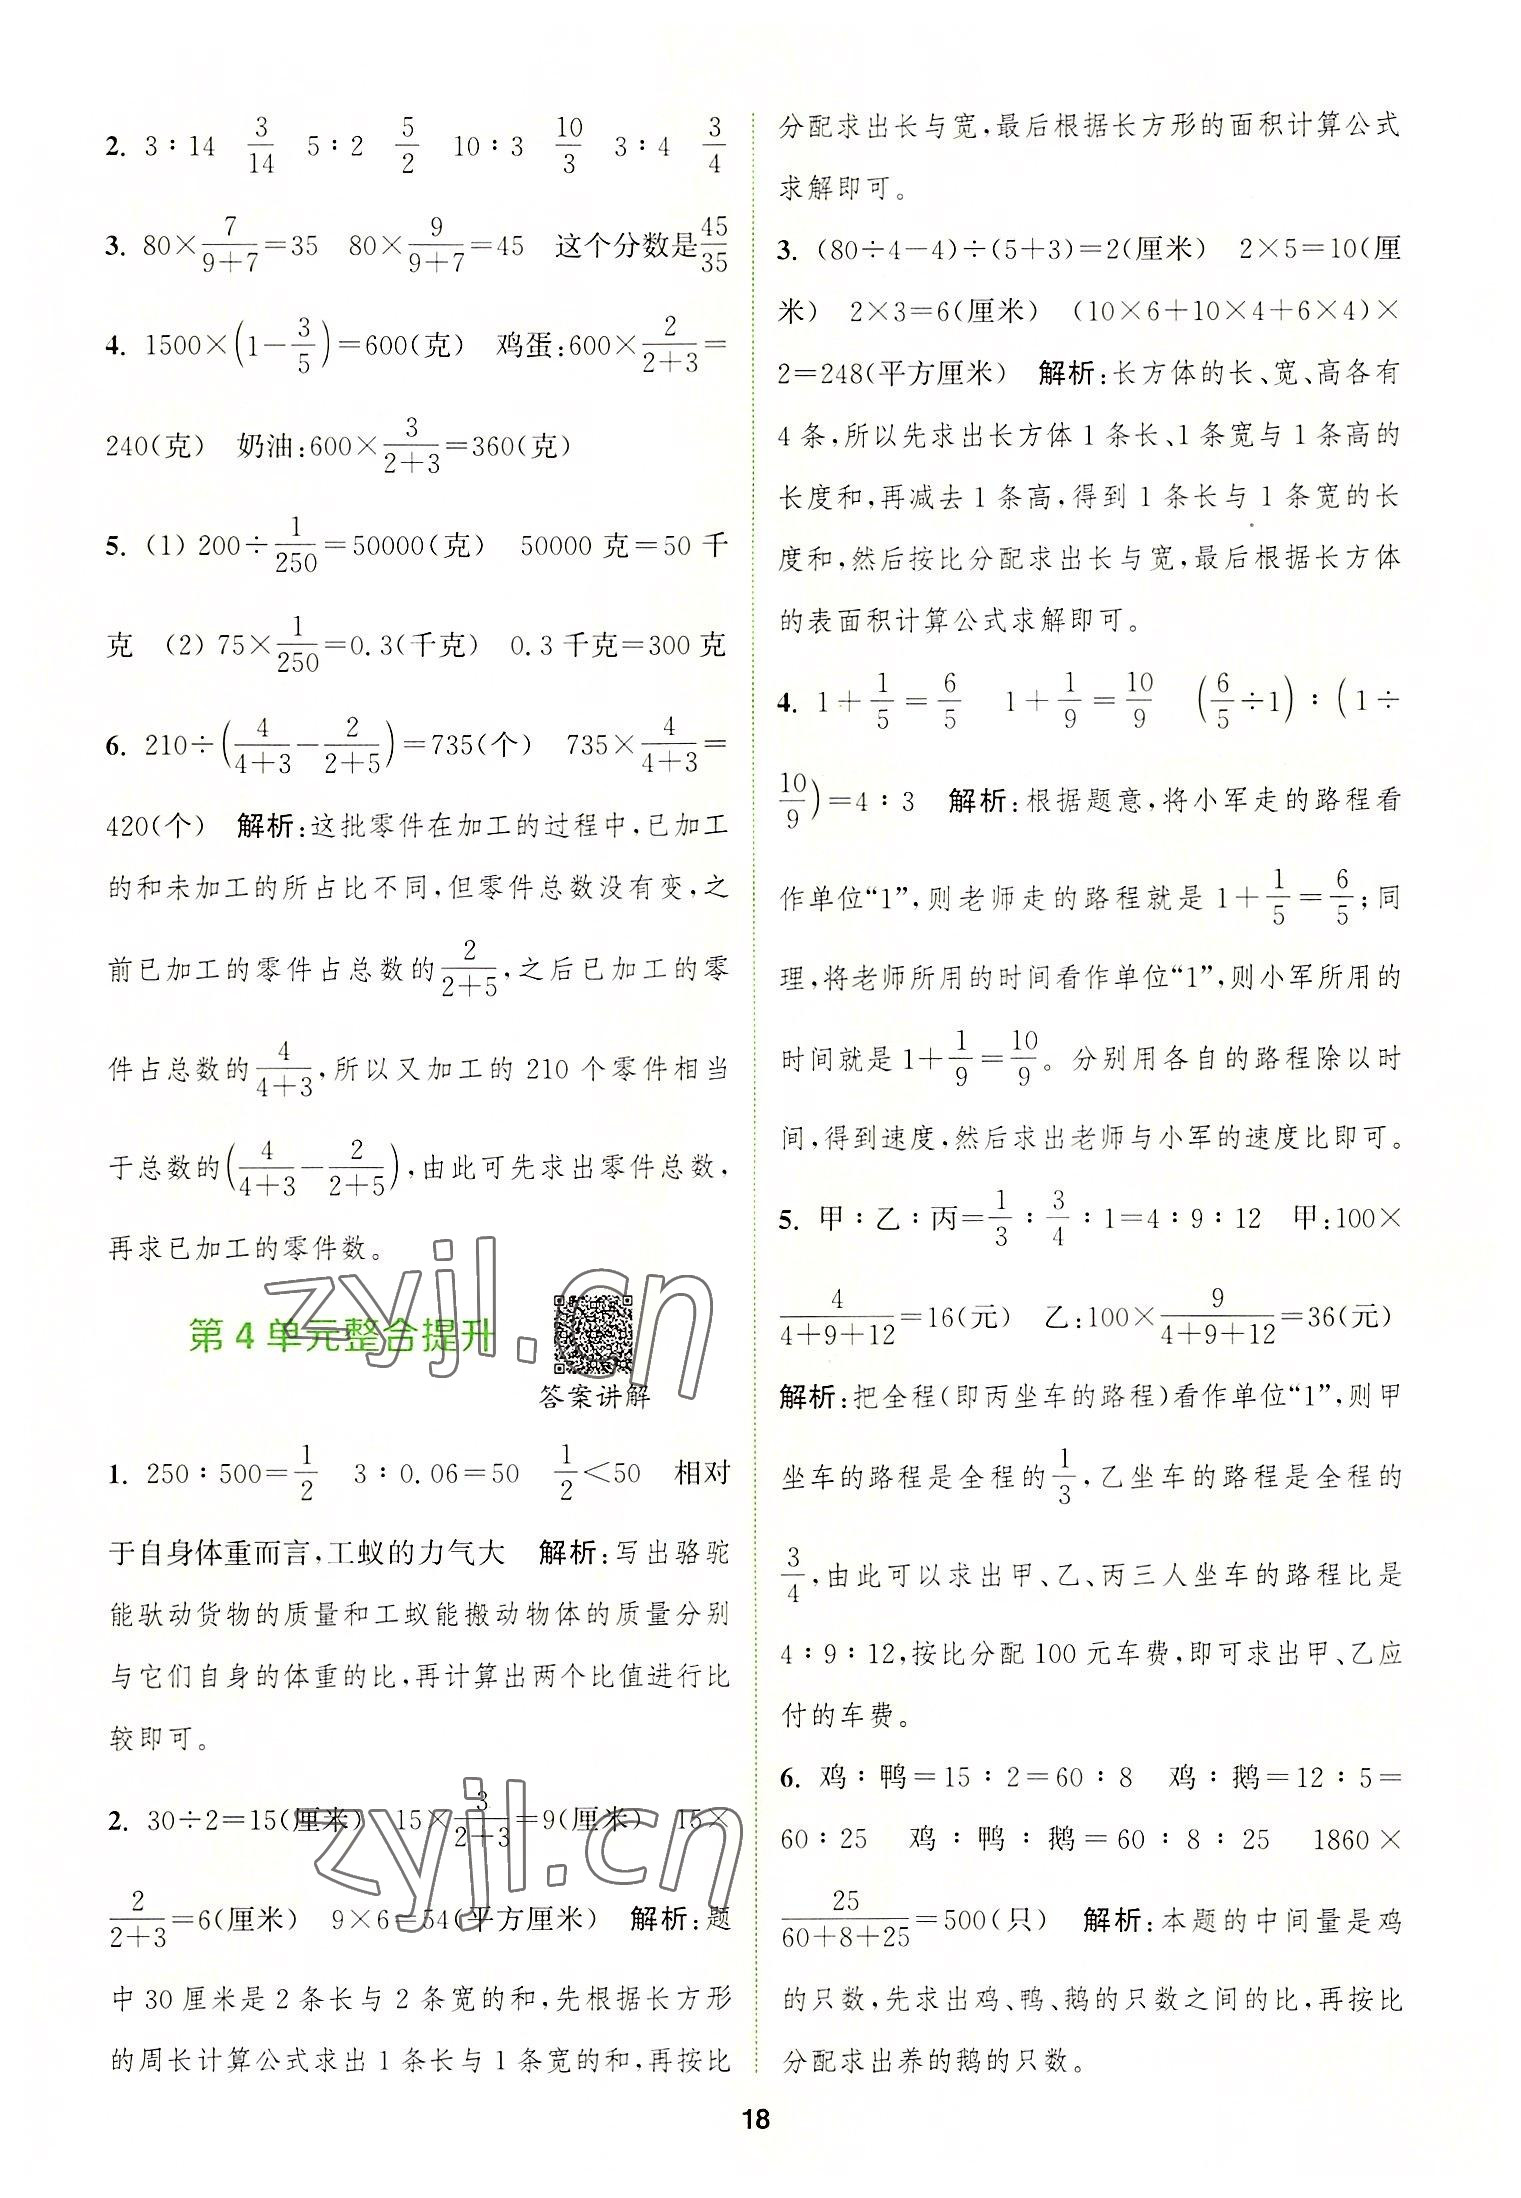 2. 3∶14　3/14　5∶2　5/2　10∶3　10/3　3∶4　3/4
3. 80×7/(9+7)=35　80×9/(9+7)=45　这个分数是45/35
4. 1500×(1-3/5)=600(克)　鸡蛋:600×2/(2+3)=
240(克)　奶油:600×3/(2+3)=360(克)
5. (1) 200÷1/250=50000(克)　50000 克=50 千
克　(2) 75×1/250=0.3(千克)　0.3 千克=300 克
6. 210÷(4/(4+3)-2/(2+5))=735(个)　735×4/(4+3)=
420(个)　解析:这批零件在加工的过程中,已加工
的和未加工的所占比不同,但零件总数没有变,之
前已加工的零件占总数的2/(2+5),之后已加工的零
件占总数的4/(4+3),所以又加工的 210 个零件相当
于总数的(4/(4+3)-2/(2+5)),由此可先求出零件总数,
再求已加工的零件数。
第 4 单元整合提升
答案讲解
1. 250∶500=1/2　3∶0.06=50　1/2<50　相对
于自身体重而言,工蚁的力气大　解析:写出骆驼
能驮动货物的质量和工蚁能搬动物体的质量分别
与它们自身的体重的比,再计算出两个比值进行比
较即可。
2. 30÷2=15(厘米)　15×3/(2+3)=9(厘米)　15×
2/(2+3)=6(厘米)　9×6=54(平方厘米)　解析:题
中 30 厘米是 2 条长与 2 条宽的和,先根据长方形
的周长计算公式求出 1 条长与 1 条宽的和,再按比
分配求出长与宽,最后根据长方形的面积计算公式
求解即可。
3. (80÷4-4)÷(5+3)=2(厘米)　2×5=10(厘
米)　2×3=6(厘米)　(10×6+10×4+6×4)×
2=248(平方厘米)　解析:长方体的长、宽、高各有
4 条,所以先求出长方体 1 条长、1 条宽与 1 条高的
长度和,再减去 1 条高,得到 1 条长与 1 条宽的长
度和,然后按比分配求出长与宽,最后根据长方体
的表面积计算公式求解即可。
4. 1+1/5=6/5　1+1/9=10/9　(6/5÷1)∶(1÷
10/9)=4∶3　解析:根据题意,将小军走的路程看
作单位“1”,则老师走的路程就是 1+1/5=6/5;同
理,将老师所用的时间看作单位“1”,则小军所用的
时间就是 1+1/9=10/9。分别用各自的路程除以时
间,得到速度,然后求出老师与小军的速度比即可。
5. 甲∶乙∶丙=1/3∶3/4∶1=4∶9∶12　甲:100×
4/(4+9+12)=16(元)　乙:100×9/(4+9+12)=36(元)
解析:把全程(即丙坐车的路程)看作单位“1”,则甲
坐车的路程是全程的1/3,乙坐车的路程是全程的
3/4,由此可以求出甲、乙、丙三人坐车的路程比是
4∶9∶12,按比分配 100 元车费,即可求出甲、乙应
付的车费。
6. 鸡∶鸭=15∶2=60∶8　鸡∶鹅=12∶5=
60∶25　鸡∶鸭∶鹅=60∶8∶25　1860×
25/(60+8+25)=500(只)　解析:本题的中间量是鸡
的只数,先求出鸡、鸭、鹅的只数之间的比,再按比
分配求出养的鹅的只数。
18
zyjl.cn
zyjl.cn